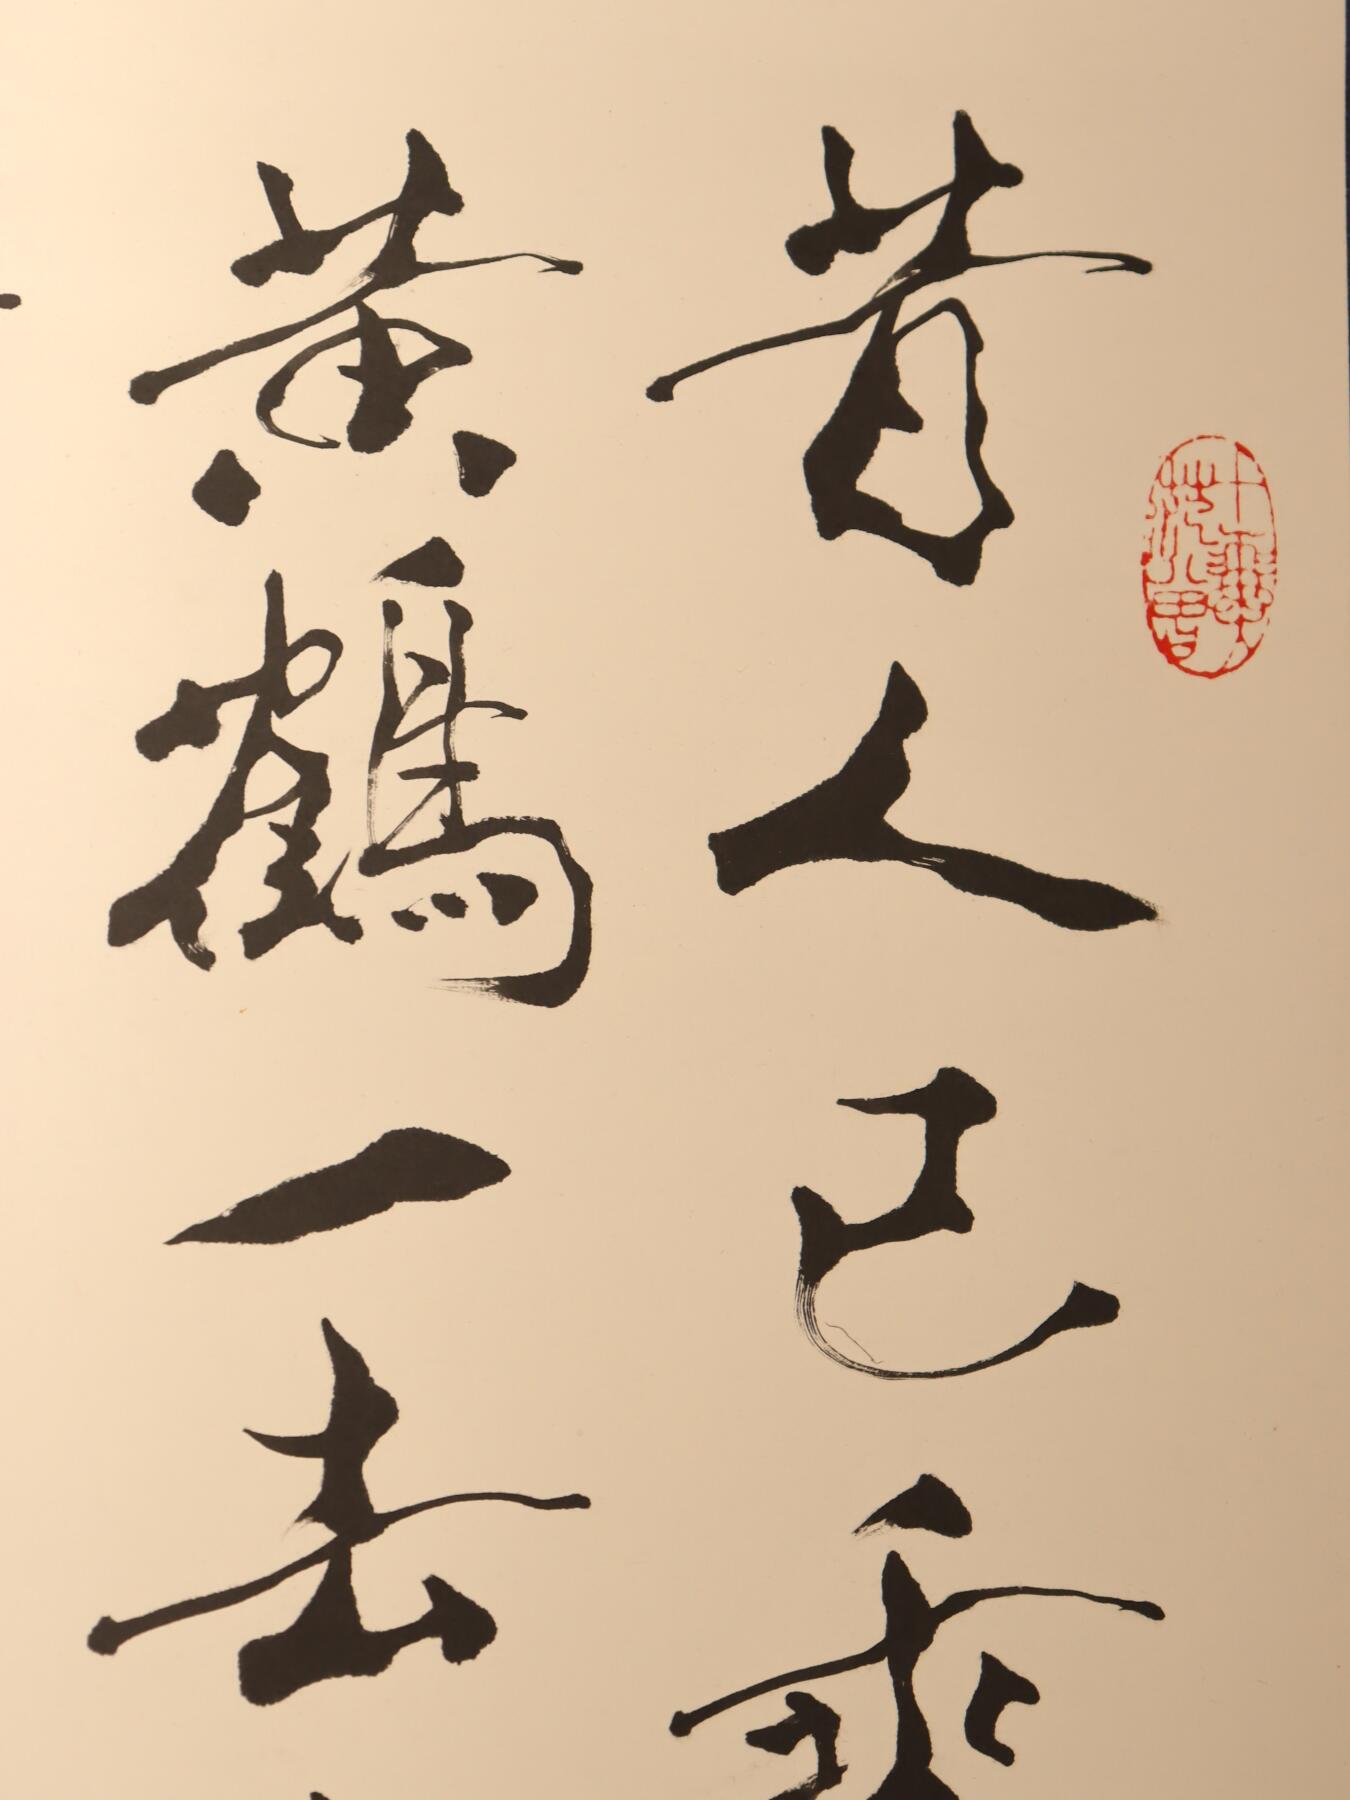 昔人已乘
黃鶴一去